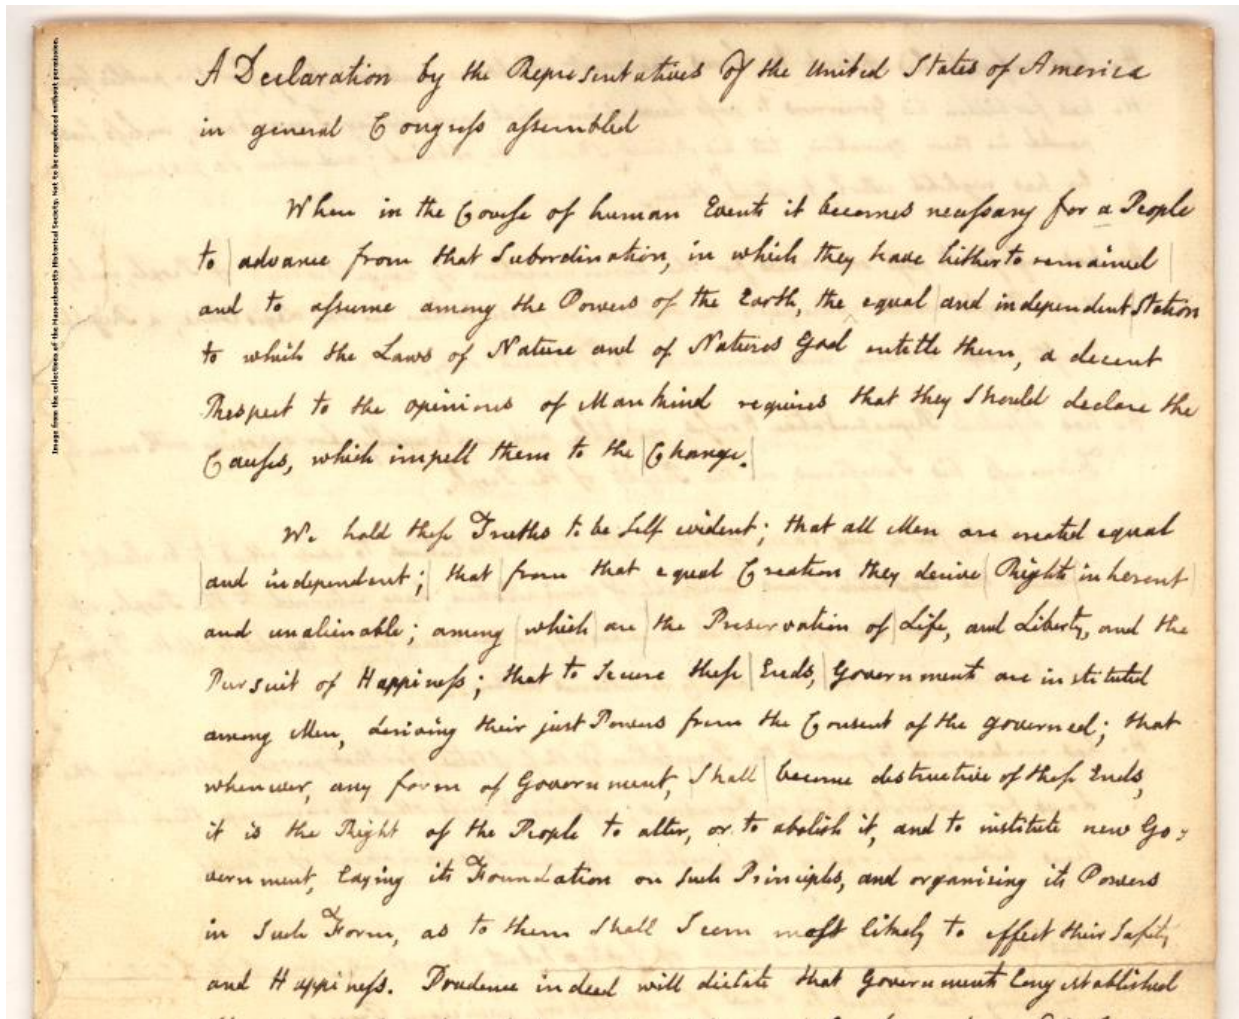 Image from the collections of the Massachusetts Historical Society. Not to be reproduced without permission.
A Declaration by the Representatives of the United States of America
in general Congress assembled
When in the Course of human Events it becomes necessary for a People
to advance from that Subordination, in which they have hitherto remained
and to assume among the Powers of the Earth, the equal and independent Station
to which the Laws of Nature and of Natures God entitle them, a decent
Respect to the opinions of Mankind requires that they Should declare the
Causes, which impell them to the Change.
We hold these Truths to be self evident; that all Men are created equal
and independent; that from that equal Creation they derive Rights inherent
and unalienable; among which are the Preservation of Life, and Liberty, and the
Pursuit of Happiness; that to Secure these Ends, Governments are instituted
among Men, deriving their just Powers from the Consent of the governed; that
whenever, any form of Government, Shall become destructive of these Ends,
it is the Right of the People to alter, or to abolish it, and to institute new Go=
vernment, laying its Foundation on Such Principles, and organising its Powers
in Such Form, as to them Shall Seem most likely to effect their Safety
and Happiness. Prudence indeed will dictate that Governments long established